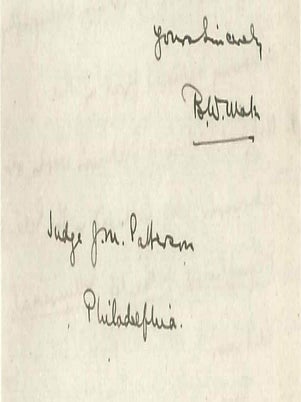 Yours Sincerely
B.W.
Judge J.M. Paterson
Philadelphia.